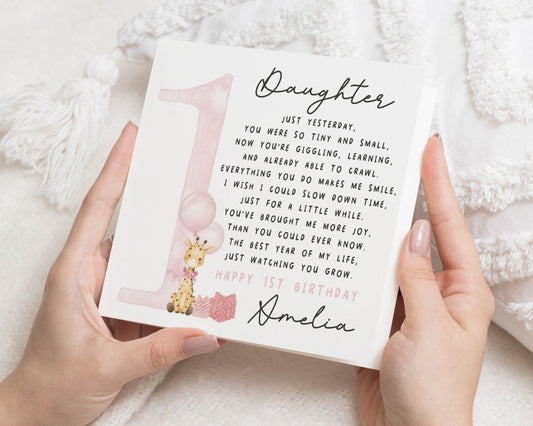 1
Daughter
JUST YESTERDAY,
YOU WERE SO TINY AND SMALL,
NOW YOU'RE GIGGLING, LEARNING,
AND ALREADY ABLE TO CRAWL.
EVERYTHING YOU DO MAKES ME SMILE,
I WISH I COULD SLOW DOWN TIME,
JUST FOR A LITTLE WHILE.
YOU'VE BROUGHT ME MORE JOY,
THAN YOU COULD EVER KNOW.
THE BEST YEAR OF MY LIFE,
JUST WATCHING YOU GROW.
HAPPY 1ST BIRTHDAY
Amelia